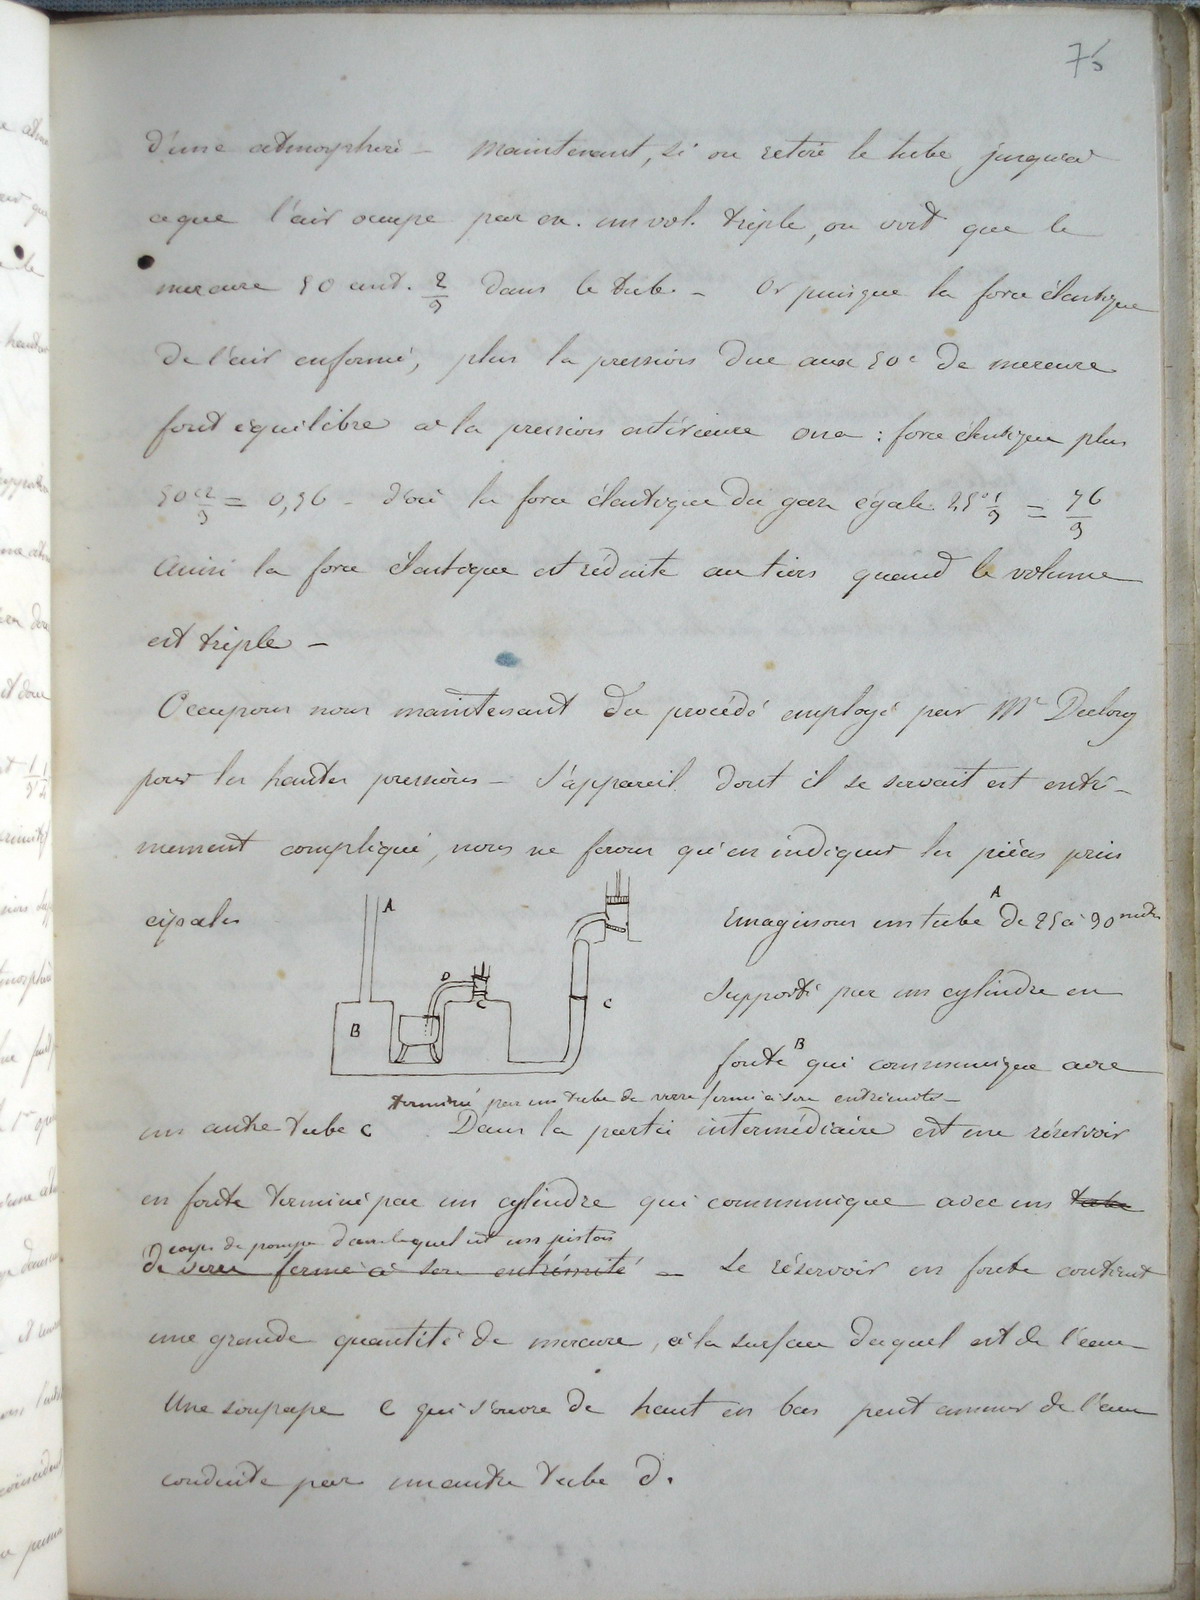 75
d'une atmosphère – Maintenant, si on retire le tube jusqu'a
ceque l'air occupe par ex. un vol. triple, on voit que le
mercure 50 cent. 2/3 dans le tube – Or puisque la force élastique
de l'air enfermé, plus la pression due aux 50c de mercure
font équilibre a la pression extérieure on a : force élastique plus
50c 2/3 = 0,76 – d'où la force élastique du gaz égale 25c 1/3 = 76/3
Ainsi la force élastique est réduite au tiers quand le volume
est triple –
Occupons nous maintenant du procédé employé par Mr Dulong
pour les hautes pressions – L'appareil dont il se servait est extrê-
mement compliqué, nous ne ferons qu'en indiquer les pièces prin
cipales
A
B
D
C
C
Imaginons un tube A de 25 à 30 mètres
supporté par un cylindre en
fonte B qui communique avec
terminé par un tube de verre fermé à son extrémité –
un autre tube C Dans la partie intermédiaire est une réservoir
en fonte terminé par un cylindre qui communique avec un tube
corps de pompe dans lequel est un piston
de verre fermé à son extrémité – Le réservoir en fonte contient
une grande quantité de mercure, à la surface duquel est de l'eau
Une soupape C qui s'ouvre de haut en bas peut amener de l'eau
conduite par un autre tube D.